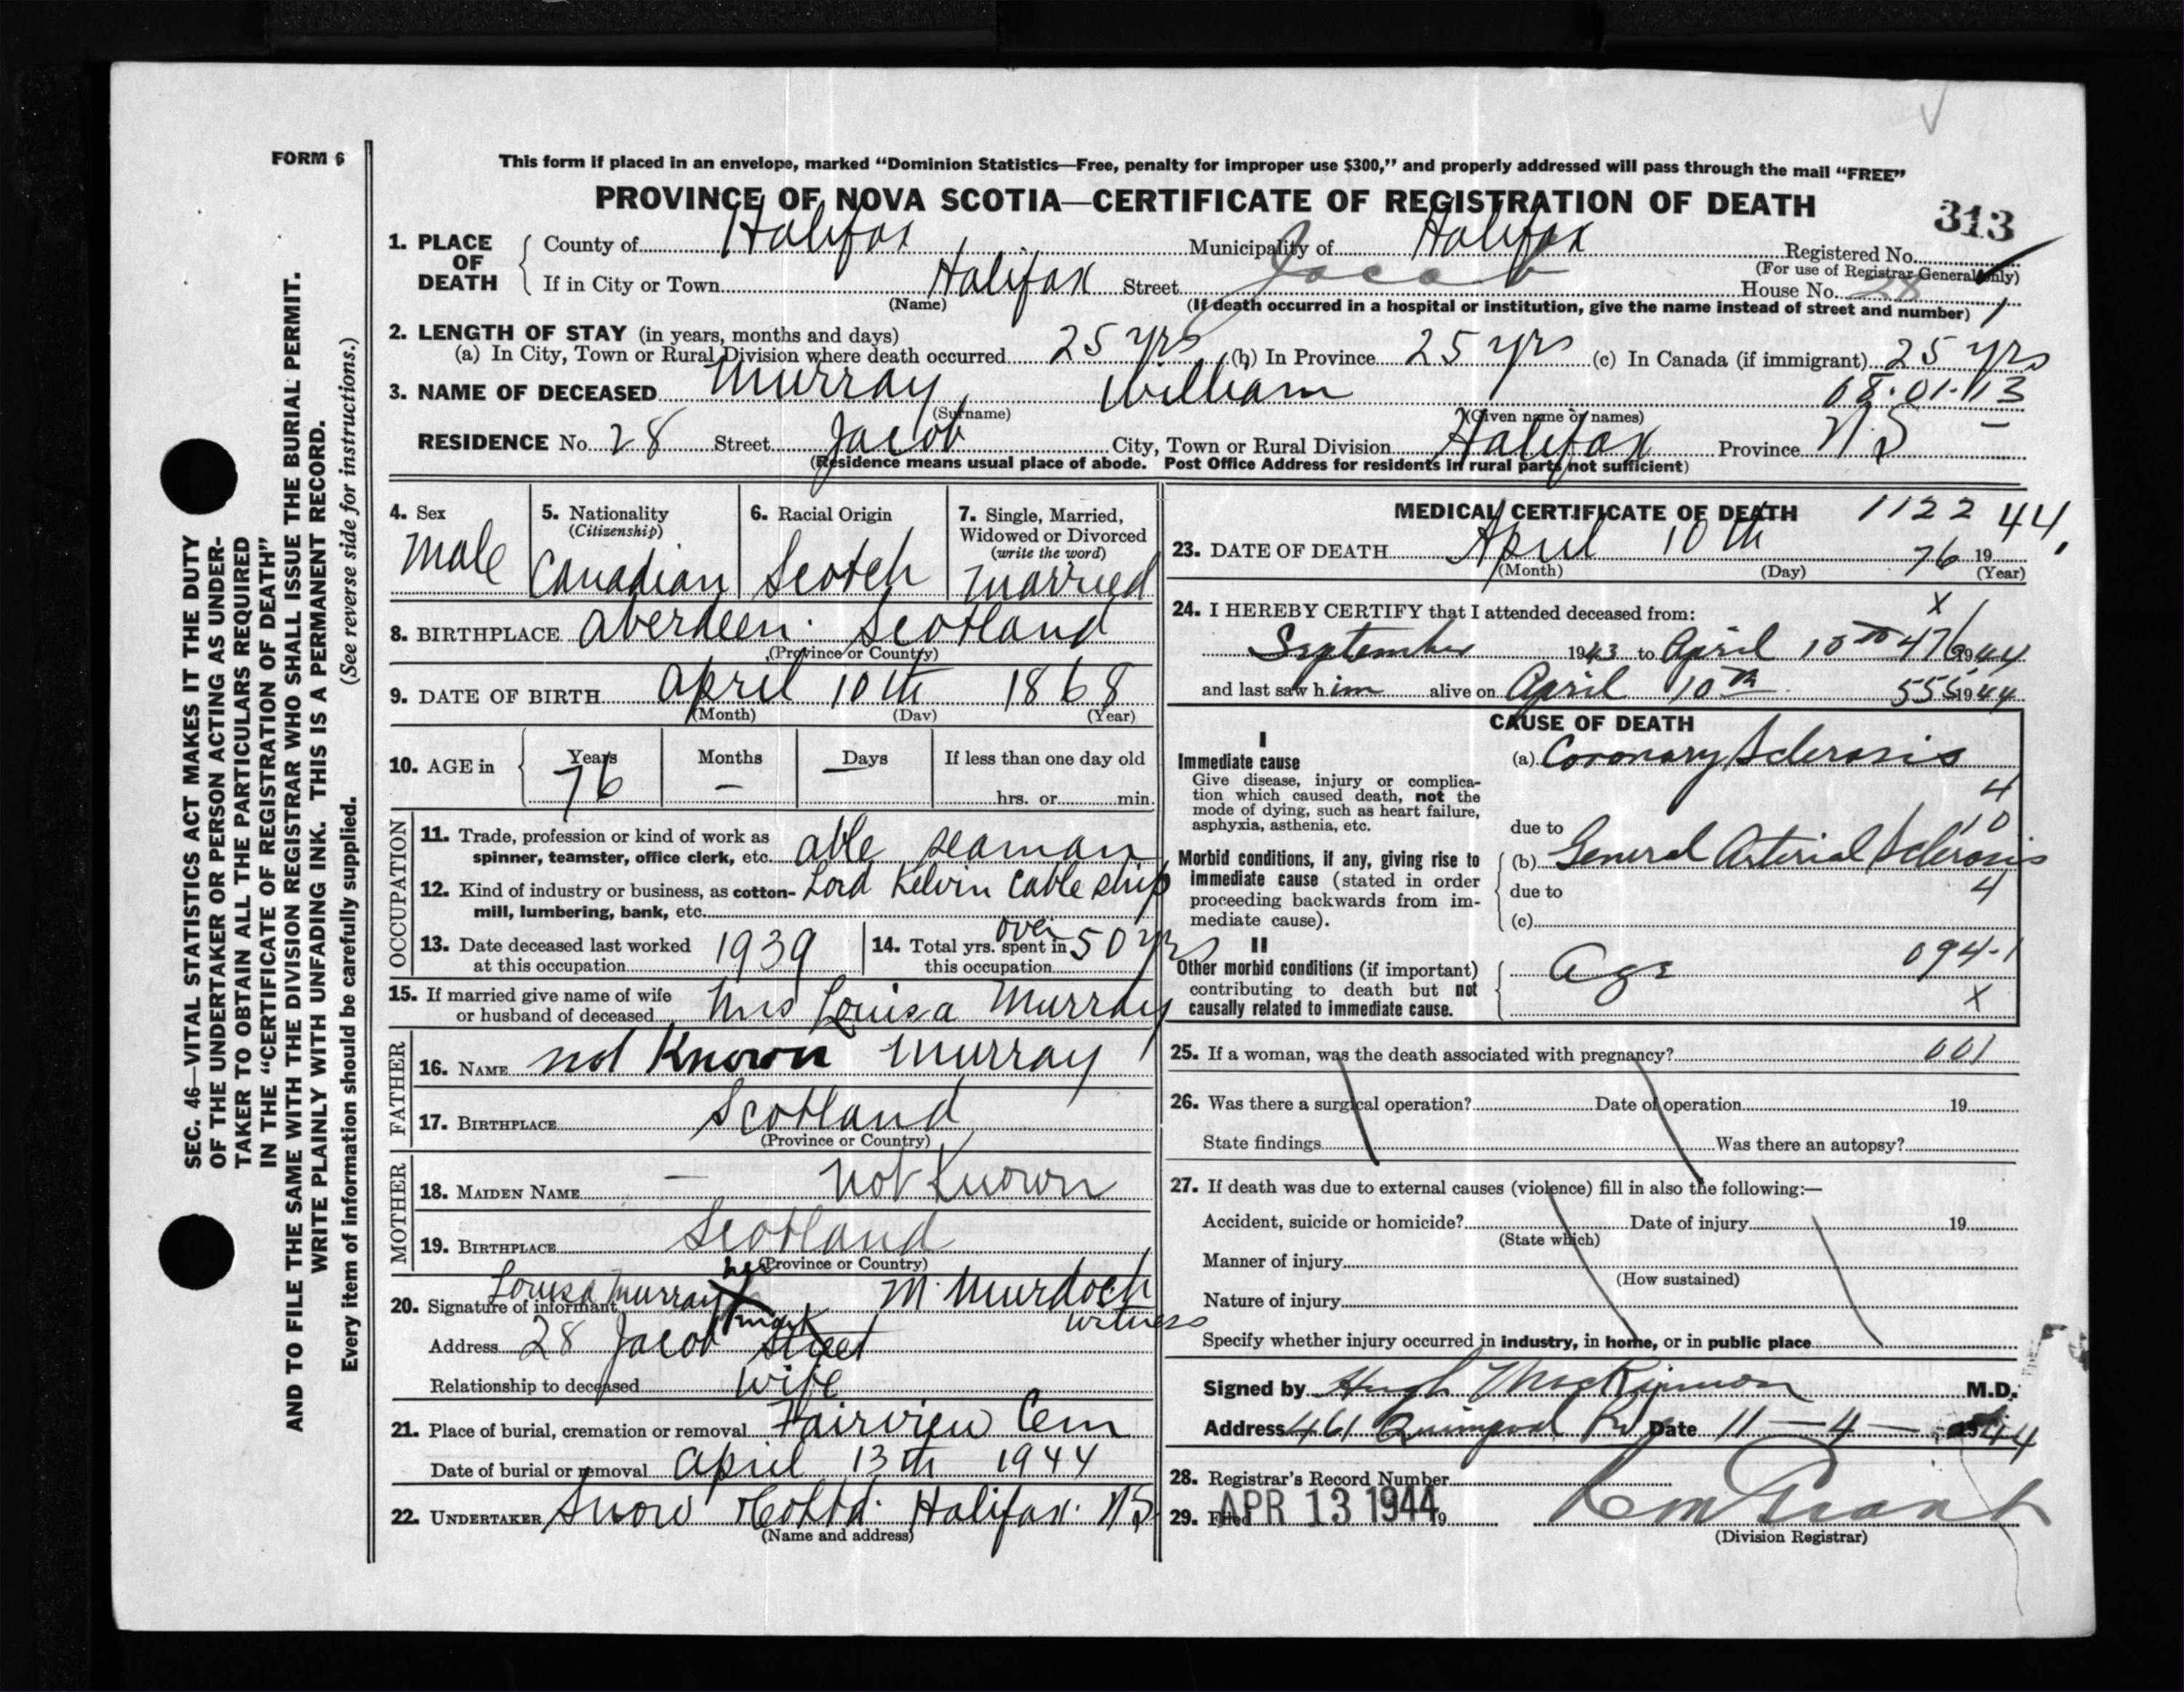 FORM 6
This form if placed in an envelope, marked “Dominion Statistics—Free, penalty for improper use $300,” and properly addressed will pass through the mail “FREE”
PROVINCE OF NOVA SCOTIA—CERTIFICATE OF REGISTRATION OF DEATH
313
1. PLACE OF DEATH
County of Halifax Municipality of Halifax Registered No.
(For use of Registrar General only)
If in City or Town Halifax Street Jacob House No. 28
(Name) (If death occurred in a hospital or institution, give the name instead of street and number)
2. LENGTH OF STAY (in years, months and days)
(a) In City, Town or Rural Division where death occurred 25 yrs (b) In Province 25 yrs (c) In Canada (if immigrant) 25 yrs
3. NAME OF DECEASED Murray William 08.01.113
(Surname) (Given name or names)
RESIDENCE No. 28 Street Jacob City, Town or Rural Division Halifax Province N.S
(Residence means usual place of abode. Post Office Address for residents in rural parts not sufficient)
4. Sex
Male
5. Nationality
(Citizenship)
Canadian
6. Racial Origin
Scotch
7. Single, Married,
Widowed or Divorced
(write the word)
Married
8. BIRTHPLACE Aberdeen. Scotland
(Province or Country)
9. DATE OF BIRTH April 10th 1868
(Month) (Day) (Year)
10. AGE in Years Months Days If less than one day old
76 — — hrs. or min.
OCCUPATION
11. Trade, profession or kind of work as
spinner, teamster, office clerk, etc. able seaman
12. Kind of industry or business, as cotton- Lord Kelvin Cable ship
mill, lumbering, bank, etc.
13. Date deceased last worked
at this occupation 1939
14. Total yrs. spent in
this occupation over 50 yrs
15. If married give name of wife
or husband of deceased Mrs Louisa Murray
FATHER
16. NAME not Known Murray
17. BIRTHPLACE Scotland
(Province or Country)
MOTHER
18. MAIDEN NAME — not Known
19. BIRTHPLACE Scotland
(Province or Country)
20. Signature of informant Louisa Murray her X mark M. Murdoch
witness
Address 28 Jacob Street
Relationship to deceased Wife
21. Place of burial, cremation or removal Fairview Cem
Date of burial or removal April 13th 1944
22. UNDERTAKER Snow & Co Ltd. Halifax. N.S
(Name and address)
MEDICAL CERTIFICATE OF DEATH 1122
23. DATE OF DEATH April 10th 76 19 44
(Month) (Day) (Year)
24. I HEREBY CERTIFY that I attended deceased from: X
September 1943 to April 10th 476 1944
and last saw him alive on April 10th 555 1944
CAUSE OF DEATH
I
Immediate cause
Give disease, injury or complica-
tion which caused death, not the
mode of dying, such as heart failure,
asphyxia, asthenia, etc.
(a) Coronary Sclerosis
4
10
due to
Morbid conditions, if any, giving rise to
immediate cause (stated in order
proceeding backwards from im-
mediate cause).
(b) General Arterial Sclerosis
due to 4
(c)
II
Other morbid conditions (if important)
contributing to death but not
causally related to immediate cause.
Age 094-1
X
25. If a woman, was the death associated with pregnancy? 001
26. Was there a surgical operation? Date of operation 19
State findings Was there an autopsy?
27. If death was due to external causes (violence) fill in also the following:—
Accident, suicide or homicide? Date of injury 19
(State which)
Manner of injury
(How sustained)
Nature of injury
Specify whether injury occurred in industry, in home, or in public place
Signed by Hugh MacKinnon M.D.
Address 461 Quinpool Rd Date 11-4-1944
28. Registrar's Record Number
29. Filed APR 13 1944 19
(Division Registrar)
SEC. 46—VITAL STATISTICS ACT MAKES IT THE DUTY
OF THE UNDERTAKER OR PERSON ACTING AS UNDER-
TAKER TO OBTAIN ALL THE PARTICULARS REQUIRED
IN THE “CERTIFICATE OF REGISTRATION OF DEATH”
AND TO FILE THE SAME WITH THE DIVISION REGISTRAR WHO SHALL ISSUE THE BURIAL PERMIT.
WRITE PLAINLY WITH UNFADING INK. THIS IS A PERMANENT RECORD.
Every item of information should be carefully supplied. (See reverse side for instructions.)